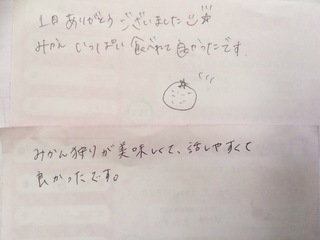 1日ありがとうございました
みかんいっぱい食べれて良かったです。
みかん狩りが美味しくて、話しやすくて
良かったです。